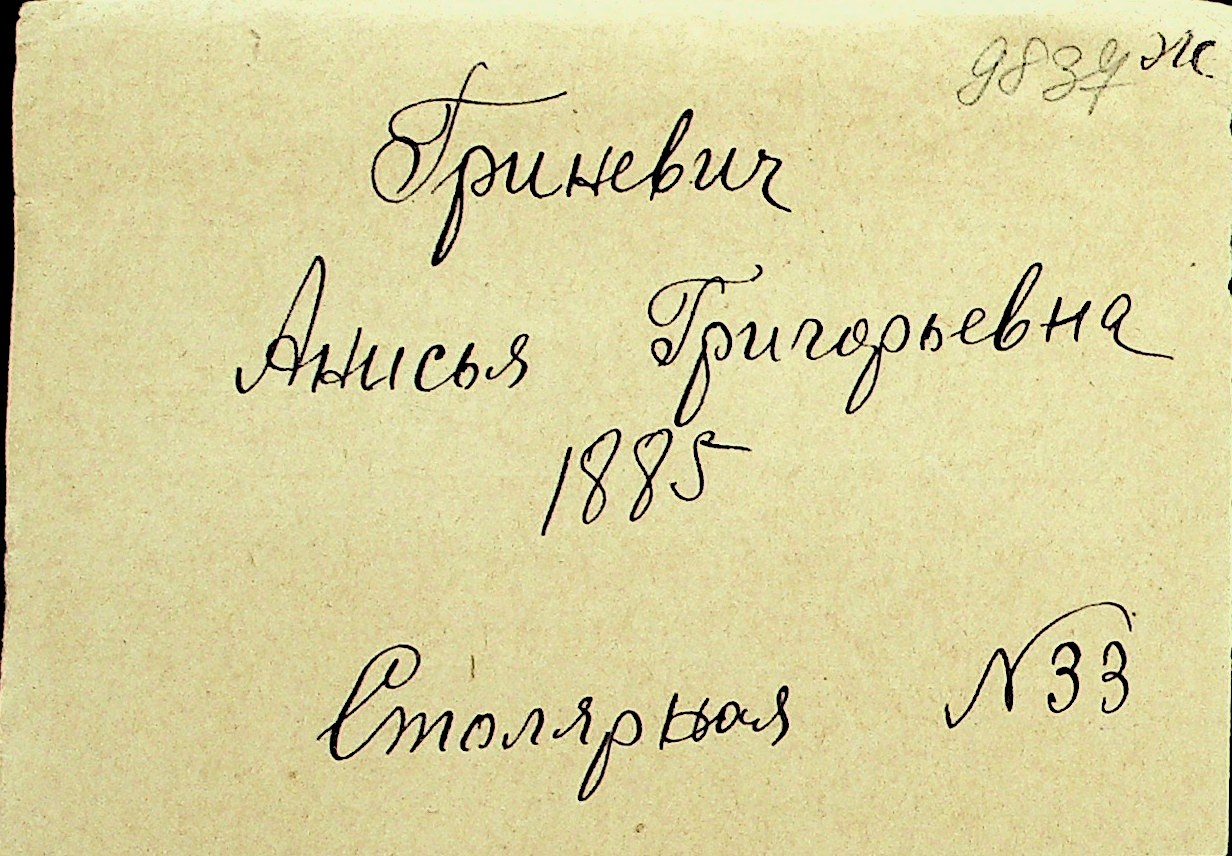 9837 ж
Гриневич
Анисья Григорьевна
1885
Столярная N33